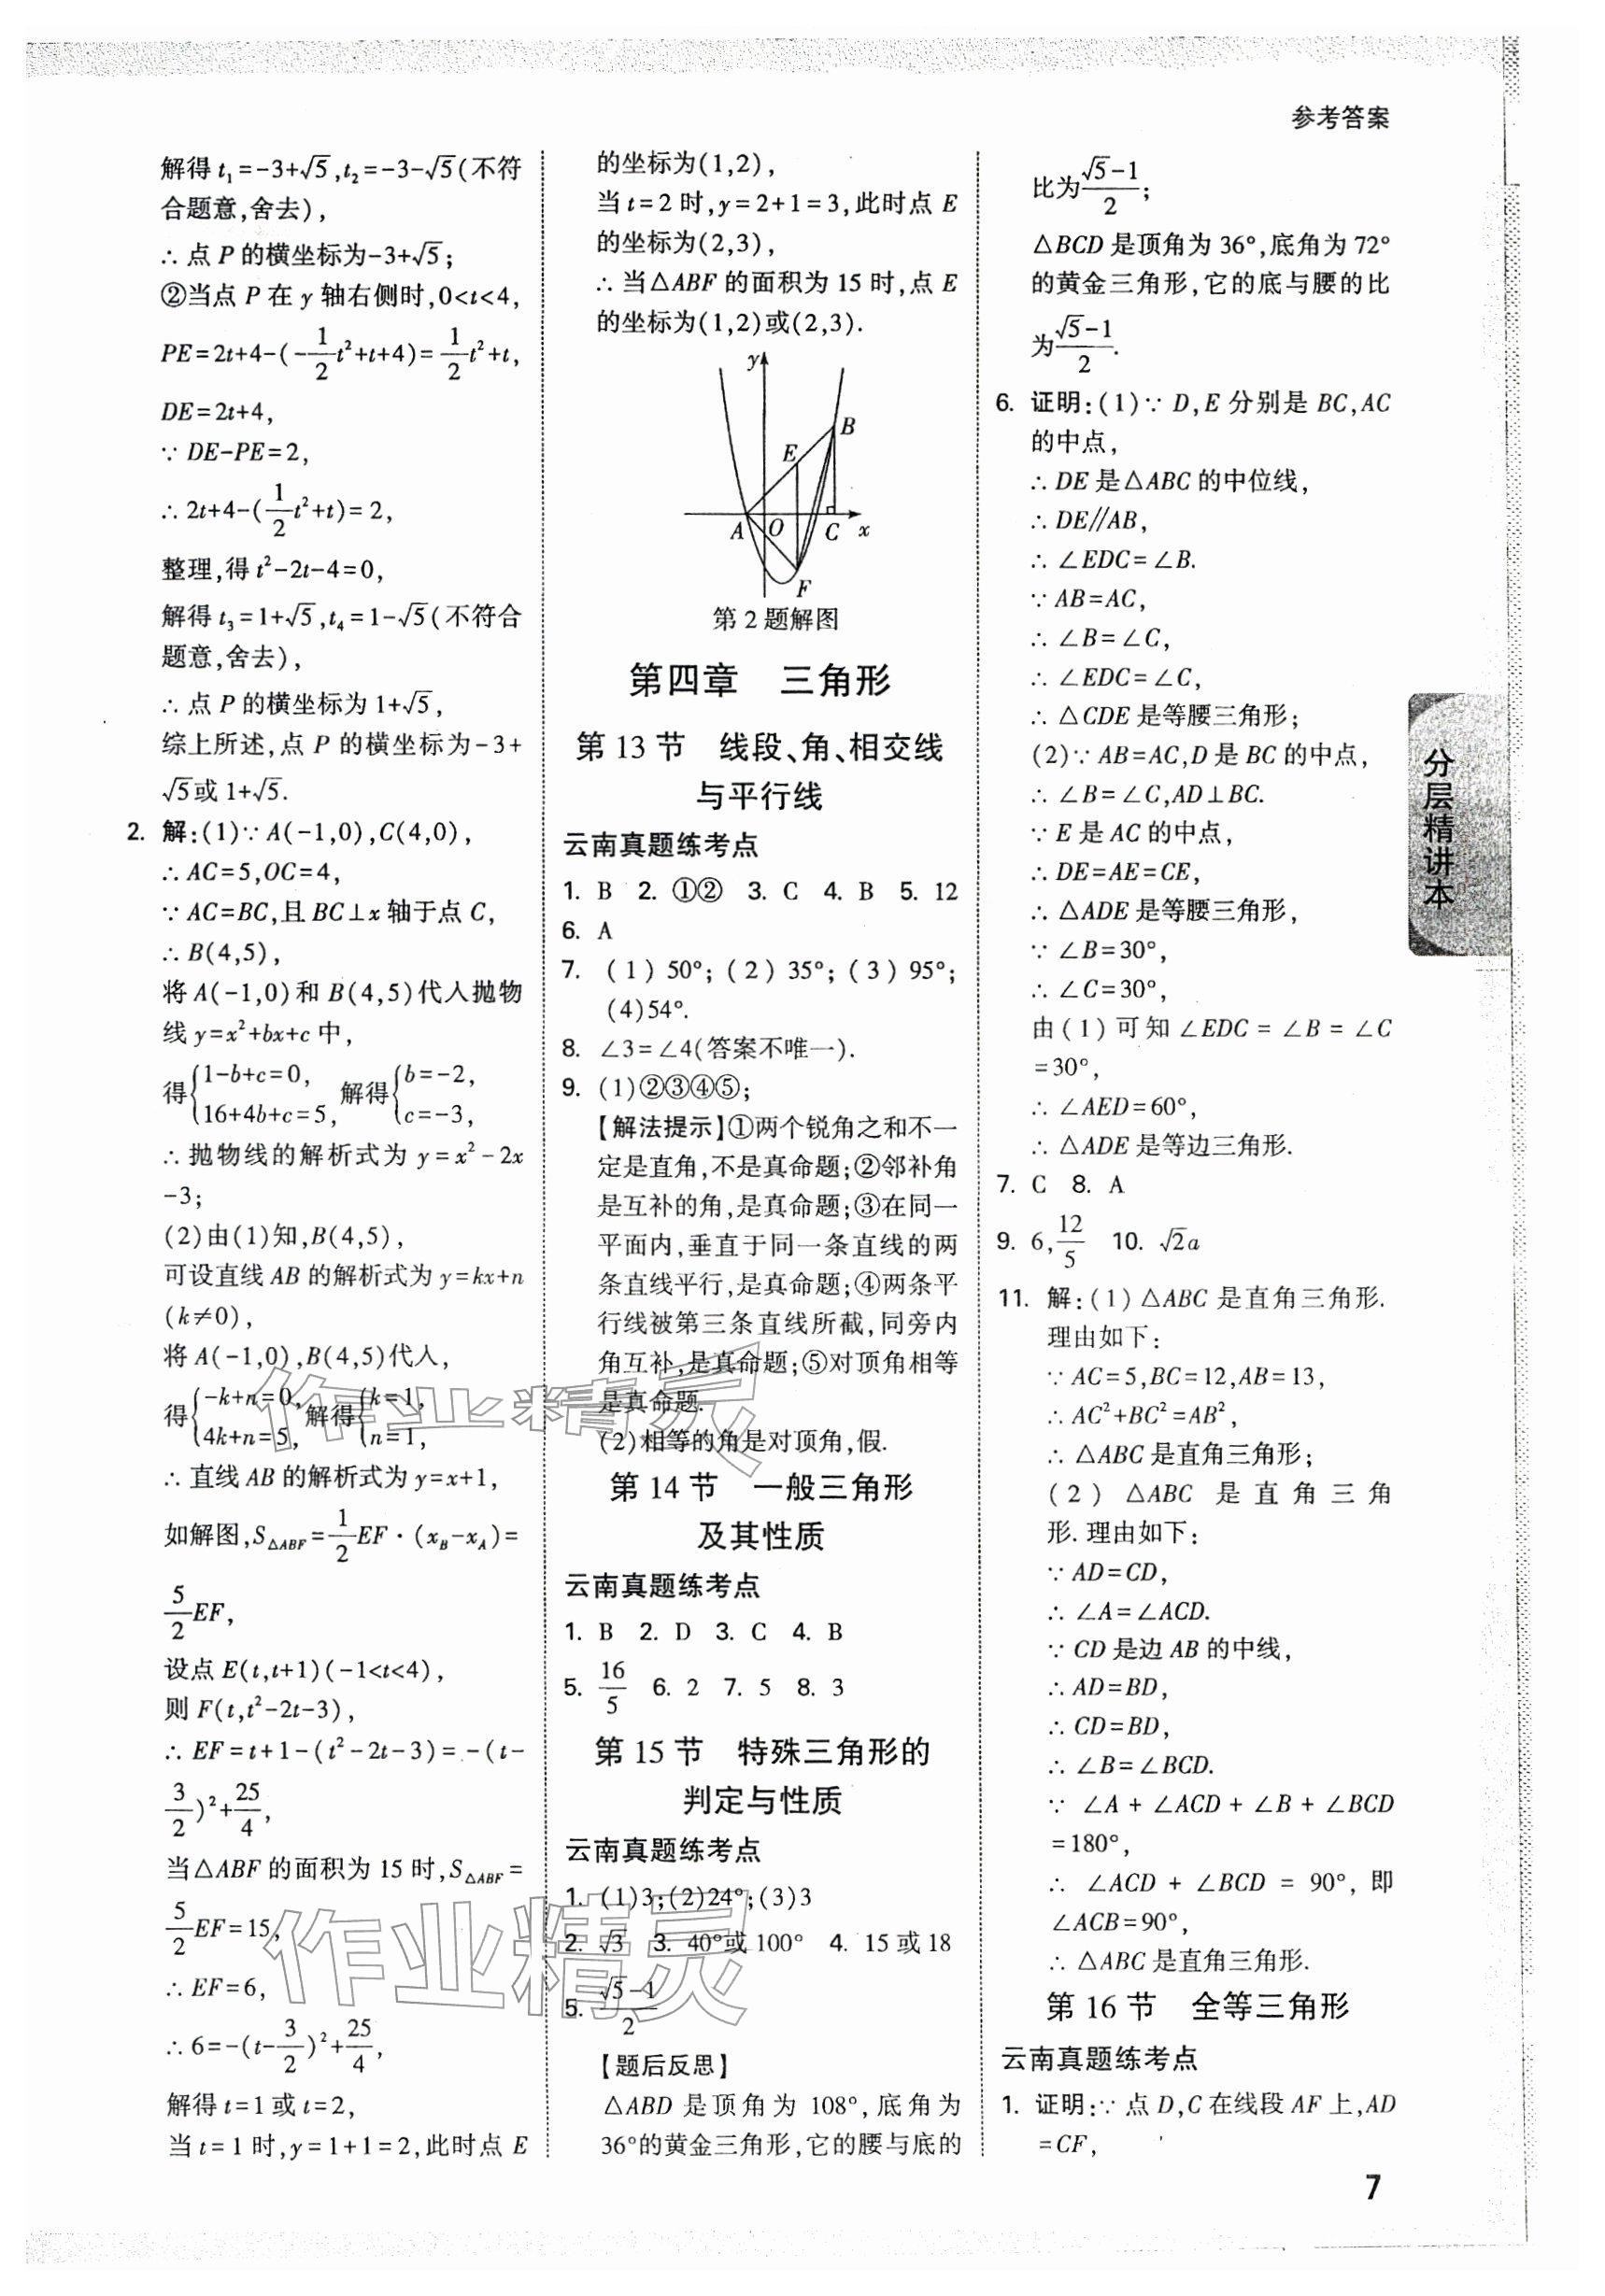 参考答案
解得 t₁=-3+√5,t₂=-3-√5(不符
合题意,舍去),
∴点 P 的横坐标为-3+√5;
②当点 P 在 y 轴右侧时,0<t<4,
PE=2t+4-(-1/2t²+t+4)=1/2t²+t,
DE=2t+4,
∵DE-PE=2,
∴2t+4-(1/2t²+t)=2,
整理,得 t²-2t-4=0,
解得 t₃=1+√5,t₄=1-√5(不符合
题意,舍去),
∴点 P 的横坐标为 1+√5,
综上所述,点 P 的横坐标为-3+
√5或 1+√5.
2. 解:(1)∵A(-1,0),C(4,0),
∴AC=5,OC=4,
∵AC=BC,且 BC⊥x 轴于点 C,
∴B(4,5),
将 A(-1,0)和 B(4,5)代人抛物
线 y=x²+bx+c 中,
得{1-b+c=0, 16+4b+c=5, 解得{b=-2, c=-3,
∴抛物线的解析式为 y=x²-2x
-3;
(2)由(1)知,B(4,5),
可设直线 AB 的解析式为 y=kx+n
(k≠0),
将 A(-1,0),B(4,5)代人,
得{-k+n=0, 4k+n=5, 解得{k=1, n=1,
∴直线 AB 的解析式为 y=x+1,
如解图,S△ABF=1/2EF·(x_B-x_A)=
5/2EF,
设点 E(t,t+1)(-1<t<4),
则 F(t,t²-2t-3),
∴EF=t+1-(t²-2t-3)=-(t-
3/2)²+25/4,
当△ABF 的面积为 15 时,S△ABF=
5/2EF=15,
∴EF=6,
∴6=-(t-3/2)²+25/4,
解得 t=1 或 t=2,
当 t=1 时,y=1+1=2,此时点 E
的坐标为(1,2),
当 t=2 时,y=2+1=3,此时点 E
的坐标为(2,3),
∴当△ABF 的面积为 15 时,点 E
的坐标为(1,2)或(2,3).
y
B
E
A O C x
F
第 2 题解图
第四章 三角形
第 13 节 线段、角、相交线
与平行线
云南真题练考点
1. B 2. ①② 3. C 4. B 5. 12
6. A
7. (1)50°;(2)35°;(3)95°;
(4)54°.
8. ∠3=∠4(答案不唯一).
9. (1)②③④⑤;
【解法提示】①两个锐角之和不一
定是直角,不是真命题;②邻补角
是互补的角,是真命题;③在同一
平面内,垂直于同一条直线的两
条直线平行,是真命题;④两条平
行线被第三条直线所截,同旁内
角互补,是真命题;⑤对顶角相等
是真命题.
(2)相等的角是对顶角,假.
第 14 节 一般三角形
及其性质
云南真题练考点
1. B 2. D 3. C 4. B
5. 16/5 6. 2 7. 5 8. 3
第 15 节 特殊三角形的
判定与性质
云南真题练考点
1. (1)3;(2)24°;(3)3
2. √3 3. 40°或 100° 4. 15 或 18
5. (√5-1)/2
【题后反思】
△ABD 是顶角为 108°,底角为
36°的黄金三角形,它的腰与底的
比为(√5-1)/2;
△BCD 是顶角为 36°,底角为 72°
的黄金三角形,它的底与腰的比
为(√5-1)/2.
6. 证明:(1)∵D,E 分别是 BC,AC
的中点,
∴DE 是△ABC 的中位线,
∴DE∥AB,
∴∠EDC=∠B.
∵AB=AC,
∴∠B=∠C,
∴∠EDC=∠C,
∴△CDE 是等腰三角形;
(2)∵AB=AC,D 是 BC 的中点,
∴∠B=∠C,AD⊥BC.
∵E 是 AC 的中点,
∴DE=AE=CE,
∴△ADE 是等腰三角形,
∵∠B=30°,
∴∠C=30°,
由(1)可知∠EDC=∠B=∠C
=30°,
∴∠AED=60°,
∴△ADE 是等边三角形.
7. C 8. A
9. 6,12/5 10. √2a
11. 解:(1)△ABC 是直角三角形.
理由如下:
∵AC=5,BC=12,AB=13,
∴AC²+BC²=AB²,
∴△ABC 是直角三角形;
(2)△ABC 是直角三角
形.理由如下:
∵AD=CD,
∴∠A=∠ACD.
∵CD 是边 AB 的中线,
∴AD=BD,
∴CD=BD,
∴∠B=∠BCD.
∵∠A+∠ACD+∠B+∠BCD
=180°,
∴∠ACD+∠BCD=90°,即
∠ACB=90°,
∴△ABC 是直角三角形.
第 16 节 全等三角形
云南真题练考点
1. 证明:∵点 D,C 在线段 AF 上,AD
=CF,
分层精讲本
作业精灵
作业精灵
7